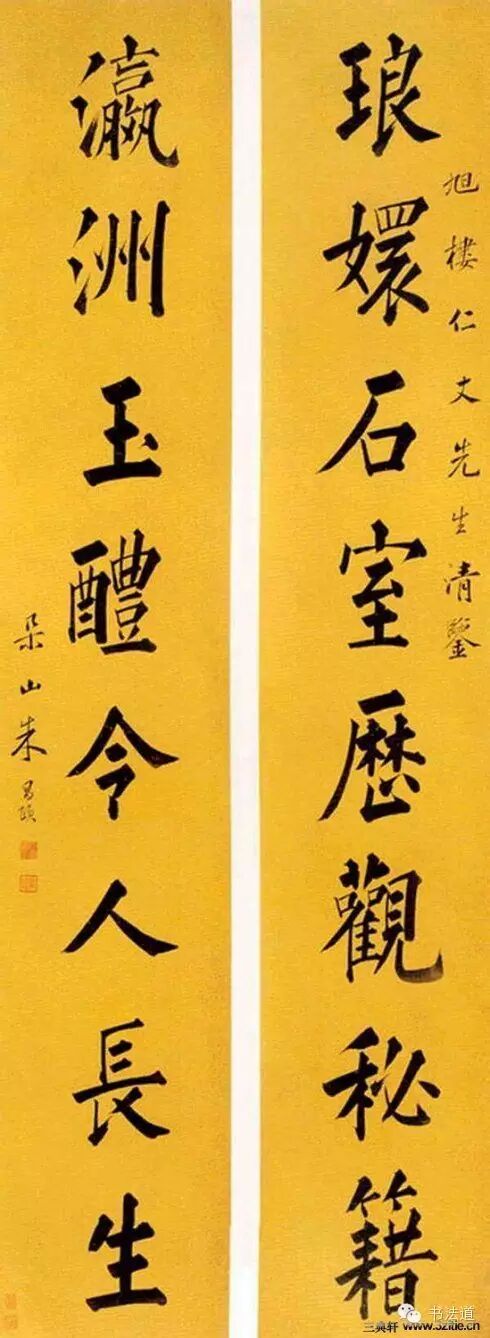 旭樓仁丈先生清鑒
琅嬛石室歷觀秘籍
瀛洲玉醴令人長生
朵山朱昌頤
书法道
三典轩 www.52lide.cn